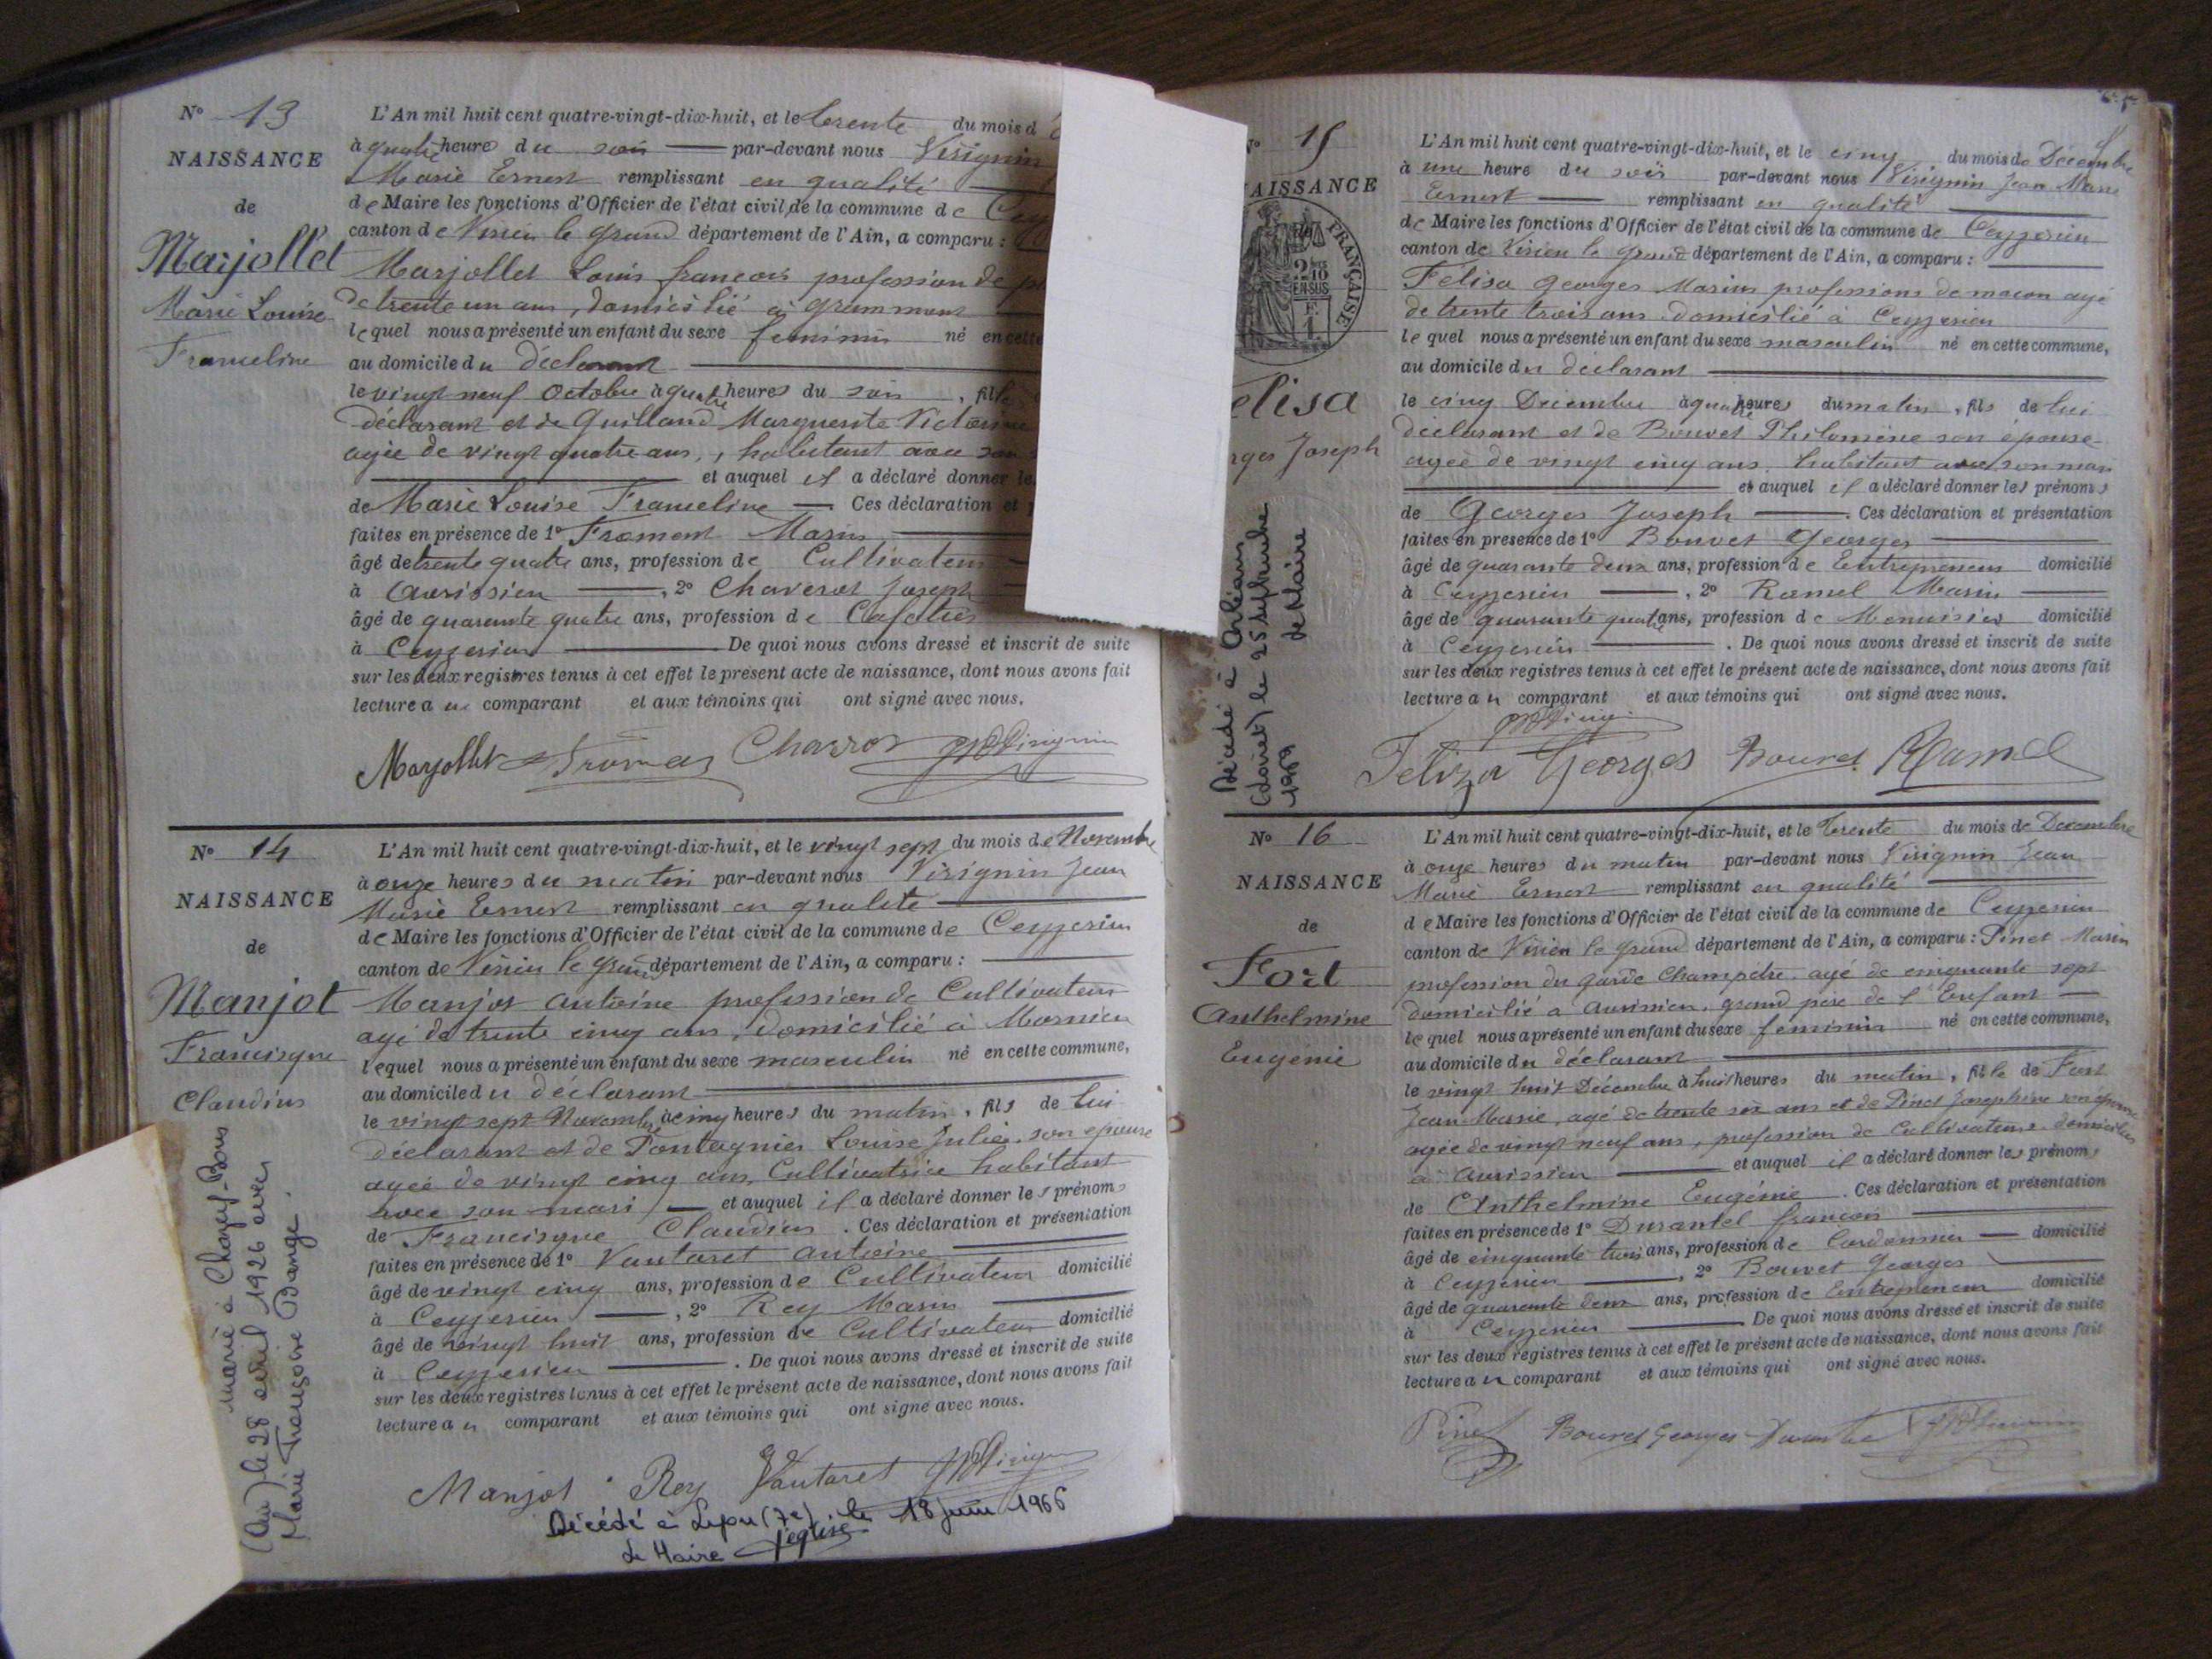 N° 13
NAISSANCE
de
Marjollet
Marie Louise
Frameline
L'An mil huit cent quatre-vingt-dix-huit, et le trente du mois d
à quatre heures du soir par-devant nous Virignin
Marie Ernest remplissant en qualité
de Maire les fonctions d'Officier de l'état civil de la commune de Cey
canton de Virieu le Grand département de l'Ain, a comparu :
Marjollet Louis françois profession de
de trente un ans, domicilié à Grammont
lequel nous a présenté un enfant du sexe feminin né en cette
au domicile du déclarant
le vingt neuf Octobre à quatre heures du soir, fille
déclarant et de Guilland Marguerite
agée de vingt quatre ans, habitant avec son
et auquel il a déclaré donner les
de Marie Louise Frameline Ces déclaration et
faites en présence de 1° Froment Marin
âgé de trente quatre ans, profession de Cultivateur
à Avrissieu, 2° Chaverot Joseph
âgé de quarante quatre ans, profession de Cafetier
à Ceyzerieu De quoi nous avons dressé et inscrit de suite
sur les deux registres tenus à cet effet le présent acte de naissance, dont nous avons fait
lecture au comparant et aux témoins qui ont signé avec nous.
Marjollet Froment
N° 14
NAISSANCE
de
Manjot
Francisque
Claudius
marié à Chazey-Bons
(Ain) le 28 avril 1926 avec
Marie Françoise Dange.
L'An mil huit cent quatre-vingt-dix-huit, et le vingt sept du mois de Novembre
à onze heures du matin par-devant nous Virignin Jean
Marie Ernest remplissant en qualité
de Maire les fonctions d'Officier de l'état civil de la commune de Ceyzerieu
canton de Virieu le Grand département de l'Ain, a comparu :
Manjot Antoine profession de Cultivateur
agé de trente cinq ans, domicilié à Mornieu
lequel nous a présenté un enfant du sexe masculin né en cette commune,
au domicile du déclarant
le vingt sept Novembre à cinq heures du matin, fils de lui
déclarant et de Pontagnier Louise Julie, son épouse
agée de vingt cinq ans, Cultivatrice habitant
avec son mari et auquel il a déclaré donner les prénoms
de Francisque Claudius. Ces déclaration et présentation
faites en présence de 1° Vautaret Antoine
âgé de vingt cinq ans, profession de Cultivateur domicilié
à Ceyzerieu, 2° Rey Marin
âgé de vingt huit ans, profession de Cultivateur domicilié
à Ceyzerieu. De quoi nous avons dressé et inscrit de suite
sur les deux registres tenus à cet effet le présent acte de naissance, dont nous avons fait
lecture au comparant et aux témoins qui ont signé avec nous.
Manjot Rey Vautaret
Décédé à Lyon (7e), le 18 juin 1966
Le Maire
N° 15
NAISSANCE
FRANÇAISE
elisa
rges Joseph
Décédé à Orléans
(Loiret) le 25 septembre
1969 le Maire
L'An mil huit cent quatre-vingt-dix-huit, et le cinq du mois de Décembre
à une heure du soir par-devant nous Virignin Jean Marie
Ernest remplissant en qualité
de Maire les fonctions d'Officier de l'état civil de la commune de Ceyzerieu
canton de Virieu le Grand département de l'Ain, a comparu :
Felisa Georges Marius profession de maçon agé
de trente trois ans domicilié à Ceyzerieu
lequel nous a présenté un enfant du sexe masculin né en cette commune,
au domicile du déclarant
le cinq Décembre à quatre heures du matin, fils de lui
déclarant et de Bouvet Philomène son épouse
agée de vingt cinq ans, habitant avec son mari
et auquel il a déclaré donner les prénoms
de Georges Joseph. Ces déclaration et présentation
faites en présence de 1° Bouvet Georges
âgé de quarante deux ans, profession de Entrepreneur domicilié
à Ceyzerieu, 2° Ramel Marin
âgé de quarante quatre ans, profession de Menuisier domicilié
à Ceyzerieu. De quoi nous avons dressé et inscrit de suite
sur les deux registres tenus à cet effet le présent acte de naissance, dont nous avons fait
lecture au comparant et aux témoins qui ont signé avec nous.
Feliza Georges Bouvet Ramel
N° 16
NAISSANCE
de
Fort
Anthelmine
Eugénie
L'An mil huit cent quatre-vingt-dix-huit, et le trente du mois de Decembre
à onze heures du matin par-devant nous Virignin Jean
Marie Ernest remplissant en qualité
de Maire les fonctions d'Officier de l'état civil de la commune de Ceyzerieu
canton de Virieu le Grand département de l'Ain, a comparu : Pinet Marin
profession du garde Champêtre, agé de cinquante sept
domicilié à Avrissieu, grand père de l'Enfant
lequel nous a présenté un enfant du sexe feminin né en cette commune,
au domicile du déclarant
le vingt huit Décembre à huit heures du matin, fille de Fort
Jean Marie, agé de trente six ans et de Pinet Josephine son épouse
agée de vingt neuf ans, profession de Cultivateurs domiciliés
à Avrissieu et auquel il a déclaré donner les prénoms
de Anthelmine Eugénie. Ces déclaration et présentation
faites en présence de 1° Durantel françois
âgé de cinquante trois ans, profession de Cordonnier domicilié
à Ceyzerieu, 2° Bouvet Georges
âgé de quarante deux ans, profession de Entrepreneur domicilié
à Ceyzerieu De quoi nous avons dressé et inscrit de suite
sur les deux registres tenus à cet effet le présent acte de naissance, dont nous avons fait
lecture au comparant et aux témoins qui ont signé avec nous.
Pinet Bouvet Georges